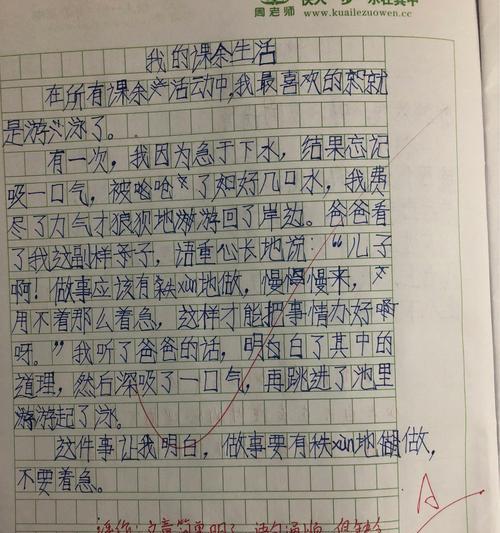 周老师 快人一步 乐在其中
www.kuailezuowen.cc
我的课余生活
在所有课余活动中,我最喜欢的就
是游泳了。
有一次,我因为急于下水,结果忘记
吸一口气,被呛了好几口水,我费
尽了力气才狼狈地游回了岸边。爸爸看
了我这副样子,语重心长地说:“儿子
啊!做事应该有秩xùn地做,慢慢来,
用不着那么着急,这样才能把事情办好
呀。”我听了爸爸的话,明白了其中的
道理,然后深吸了一口气,再跳进了池里
游起了泳。
这件事让我明白,做事要有秩xùn地做,
不要着急。
A
评价:文章简单明了,语句通顺,但